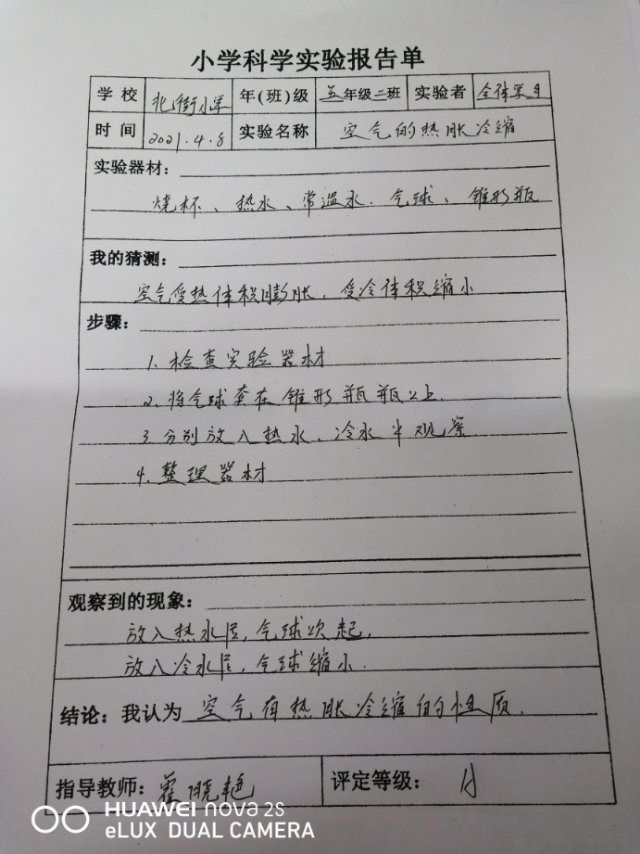 小学科学实验报告单
学校 北街小学 年(班)级 五年级二班 实验者 全体学生
时间 2021.4.8 实验名称 空气的热胀冷缩
实验器材:
烧杯、热水、常温水、气球、锥形瓶
我的猜测:
空气受热体积膨胀,受冷体积缩小
步骤:
1.检查实验器材
2.将气球套在锥形瓶瓶口上.
3.分别放入热水、冷水中观察
4.整理器材
观察到的现象:
放入热水后,气球吹起,
放入冷水后,气球缩小.
结论:我认为 空气有热胀冷缩的性质.
指导教师: 霍晓艳 评定等级: A
HUAWEI nova 2s
eLUX DUAL CAMERA